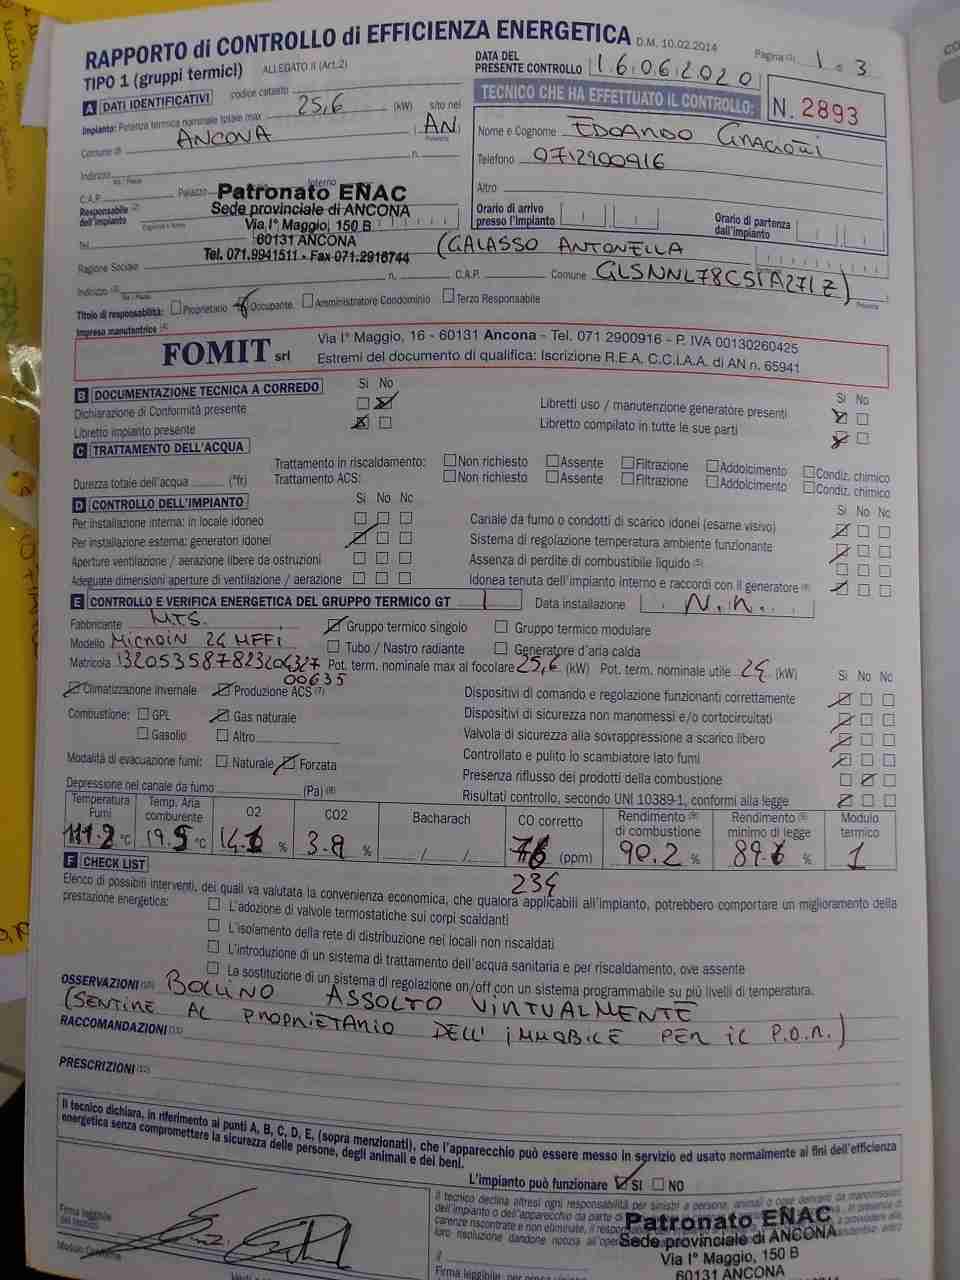 RAPPORTO di CONTROLLO di EFFICIENZA ENERGETICA D.M. 10.02.2014
TIPO 1 (gruppi termici) ALLEGATO II (Art.2)
DATA DEL PRESENTE CONTROLLO 16.06.2020 Pagina (1) 1 . 3
A DATI IDENTIFICATIVI codice catasto
Impianto: Potenza termica nominale totale max 25,6 (kW) sito nel
Comune di ANCONA AN
Indirizzo n.
C.A.P. Palazzo Interno
Responsabile dell'impianto
Patronato ENAC
Sede provinciale di ANCONA
Via I° Maggio, 150 B
60131 ANCONA
Tel. 071.9941511 - Fax 071.2916744
TECNICO CHE HA EFFETTUATO IL CONTROLLO: N. 2893
Nome e Cognome EDOARDO
Telefono 0712900916
Altro
Orario di arrivo presso l'impianto
Orario di partenza dall'impianto
Tel.
Ragione Sociale (GALASSO ANTONELLA
Indirizzo n. C.A.P. Comune GLSNNL78C51A271Z)
Titolo di responsabilità: Proprietario Occupante Amministratore Condominio Terzo Responsabile
Impresa manutentrice
FOMIT srl
Via I° Maggio, 16 - 60131 Ancona - Tel. 071 2900916 - P. IVA 00130260425
Estremi del documento di qualifica: Iscrizione R.E.A. C.C.I.A.A. di AN n. 65941
B DOCUMENTAZIONE TECNICA A CORREDO Si No
Si No
Dichiarazione di Conformità presente
Libretti uso / manutenzione generatore presenti
Libretto impianto presente
Libretto compilato in tutte le sue parti
C TRATTAMENTO DELL'ACQUA
Durezza totale dell'acqua (°fr)
Trattamento in riscaldamento: Non richiesto Assente Filtrazione Addolcimento Condiz. chimico
Trattamento ACS: Non richiesto Assente Filtrazione Addolcimento Condiz. chimico
D CONTROLLO DELL'IMPIANTO Si No Nc
Si No Nc
Per installazione interna: in locale idoneo
Canale da fumo o condotti di scarico idonei (esame visivo)
Per installazione esterna: generatori idonei
Sistema di regolazione temperatura ambiente funzionante
Aperture ventilazione / aerazione libere da ostruzioni
Assenza di perdite di combustibile liquido (5)
Adeguate dimensioni aperture di ventilazione / aerazione
Idonea tenuta dell'impianto interno e raccordi con il generatore (6)
E CONTROLLO E VERIFICA ENERGETICA DEL GRUPPO TERMICO GT 1 Data installazione N.n.
Fabbricante MTS.
Gruppo termico singolo Gruppo termico modulare
Modello Microin 24 MFFi
Tubo / Nastro radiante Generatore d'aria calda
Matricola 132053587823204327 00635 Pot. term. nominale max al focolare 25,6 (kW) Pot. term. nominale utile 24 (kW)
Si No Nc
Climatizzazione invernale Produzione ACS (7)
Dispositivi di comando e regolazione funzionanti correttamente
Combustione: GPL Gas naturale
Dispositivi di sicurezza non manomessi e/o cortocircuitati
Gasolio Altro
Valvola di sicurezza alla sovrappressione a scarico libero
Controllato e pulito lo scambiatore lato fumi
Modalità di evacuazione fumi: Naturale Forzata
Presenza riflusso dei prodotti della combustione
Depressione nel canale da fumo (Pa) (8)
Risultati controllo, secondo UNI 10389-1, conformi alla legge
Temperatura Fumi Temp. Aria comburente O2 CO2 Bacharach CO corretto Rendimento di combustione Rendimento minimo di legge Modulo termico
111.2 °C 19.5 °C % 3.8 % / / 76 (ppm) 90.2 % 89.6 % 1
234
F CHECK LIST
Elenco di possibili interventi, dei quali va valutata la convenienza economica, che qualora applicabili all'impianto, potrebbero comportare un miglioramento della
prestazione energetica:
L'adozione di valvole termostatiche sui corpi scaldanti
L'isolamento della rete di distribuzione nei locali non riscaldati
L'introduzione di un sistema di trattamento dell'acqua sanitaria e per riscaldamento, ove assente
La sostituzione di un sistema di regolazione on/off con un sistema programmabile su più livelli di temperatura.
OSSERVAZIONI (10) BOLLINO ASSOLTO VIRTUALMENTE
(SENTIRE AL PROPRIETARIO DELL'IMMOBILE PER IL P.O.R.)
RACCOMANDAZIONI (11)
PRESCRIZIONI (12)
Il tecnico dichiara, in riferimento ai punti A, B, C, D, E, (sopra menzionati), che l'apparecchio può essere messo in servizio ed usato normalmente ai fini dell'efficienza
energetica senza compromettere la sicurezza delle persone, degli animali e dei beni.
L'impianto può funzionare SI NO
Il tecnico declina altresì ogni responsabilità per sinistri a persone, animali o cose derivanti da manomissioni
dell'impianto o dell'apparecchio da parte di
carenze riscontrate e non eliminate, il
loro risoluzione dandone notizia
Firma leggibile del tecnico
Patronato ENAC
Sede provinciale di ANCONA
Via I° Maggio, 150 B
60131 ANCONA
Firma leggibile, per